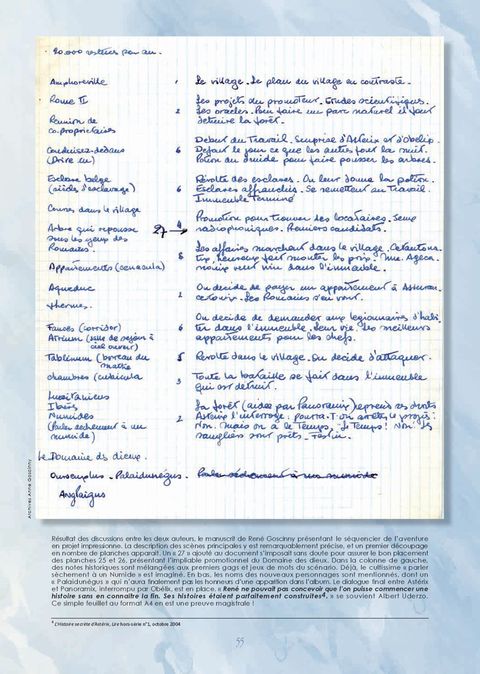 20.000 visiteurs par an.
Amphoreville
Rome II
Réunion de
co-propriétaires
Conduisez-dedans
(Drive in)
Esclave belge
(siècles d'esclavage)
Courses dans le village
Arbre qui repousse
sous les yeux des
Romains
Appartements (cenacula)
Aqueduc
thermes
Fauces (corridor)
Atrium (salle de séjour à
ciel ouvert)
Tablinum (bureau du
maître
chambres (cubicula
Lusitanius
Ibères
Numides
(Parler sèchement à un
numide)
Le Domaine des dieux
1
2
6
6
27 → 4
8
1
6
5
3
2
Le village. Le plan du village en contraste.
Les projets du promoteur. Etudes scientifiques.
Les oracles. Pour faire un parc naturel il faut
détruire la forêt.
Début du Travail. Surprise d'Astérix et d'Obélix.
Défait le jour ce que les autres font la nuit.
Potion du druide pour faire pousser les arbres.
Révolte des esclaves. On leur donne la potion.
Esclaves affranchis. Se remettent au Travail.
Immeuble Terminé
Promotion pour trouver des locataires. Jeux
radiophoniques. Premiers candidats.
Les affaires marchent dans le village. Cétautoma-
tix, heureux, fait monter les prix. Mme. Agecanonix
veut vivre dans l'immeuble.
On décide de payer un appartement à Assuran-
cetourix. Les Romains s'en vont.
On décide de demander aux légionnaires d'habi-
ter dans l'immeuble. Leur vie. Les meilleurs
appartements pour les chefs.
Révolte dans le village. On décide d'attaquer.
Toute la bataille se fait dans l'immeuble
qui est détruit.
La forêt (aidée par Panoramix) reprend ses droits
Astérix l'interroge : pourra-t-on arrêter le progrès?
Non. Mais on a le Temps. - Le Temps! Non! les
sangliers sont prêts - Festin.
Oursenplus - Palaidunégus - Parler sèchement à un numide
Anglaigus
Archives Anne Goscinny
Résultat des discussions entre les deux auteurs, le manuscrit de René Goscinny présentant le séquencier de l'aventure
en projet impressionne. La description des scènes principales y est remarquablement précise, et un premier découpage
en nombre de planches apparaît. Un « 27 » ajouté au document s'imposait sans doute pour assurer le bon placement
des planches 25 et 26, présentant l'impliable promotionnel du Domaine des dieux. Dans la colonne de gauche,
des notes historiques sont mélangées aux premiers gags et jeux de mots du scénario. Déjà, le cultissime « parler
sèchement à un Numide » est imaginé. En bas, les noms des nouveaux personnages sont mentionnés, dont un
« Palaidunégus » qui n'aura finalement pas les honneurs d'une apparition dans l'album. Le dialogue final entre Astérix
et Panoramix, interrompu par Obélix, est en place. « René ne pouvait pas concevoir que l'on puisse commencer une
histoire sans en connaître la fin. Ses histoires étaient parfaitement construites⁴, » se souvient Albert Uderzo.
Ce simple feuillet au format A4 en est une preuve magistrale !
⁴ L'Histoire secrète d'Astérix, Lire hors-série n°1, octobre 2004
55